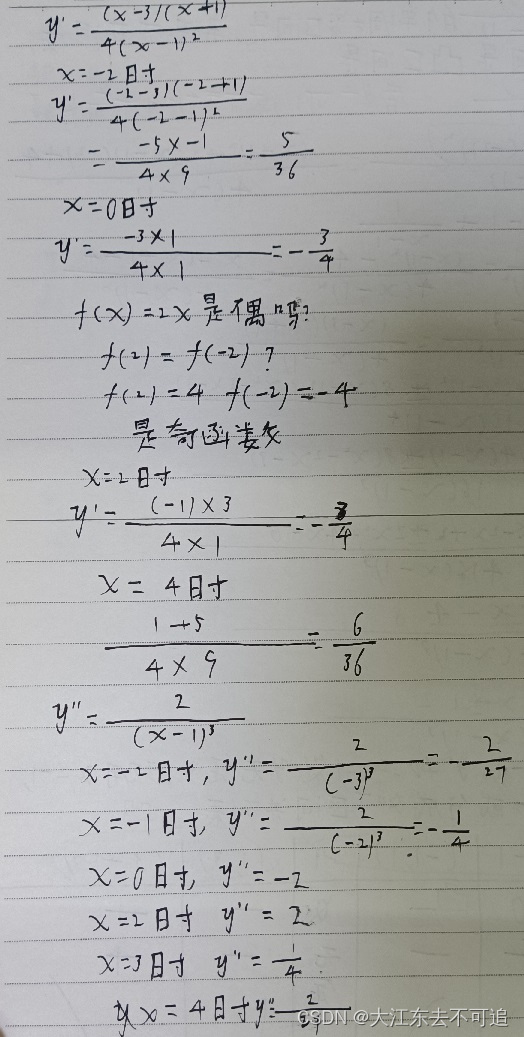 y' = (x-3)(x+1) / 4(x-1)²
x=-2时
y' = (-2-3)(-2+1) / 4(-2-1)²
= -5×-1 / 4×9 = 5/36
x=0时
y' = -3×1 / 4×1 = -3/4
f(x)=2x是偶吗?
f(2)=f(-2)?
f(2)=4 f(-2)=-4
是奇函数
x=2时
y' = (-1)×3 / 4×1 = -3/4
x=4时
1+5 / 4×9 = 6/36
y'' = 2 / (x-1)³
x=-2时, y'' = 2 / (-3)³ = -2/27
x=-1时, y'' = 2 / (-2)³ = -1/4
x=0时, y''=-2
x=2时 y''=2
x=3时 y''=1/4
x=4时y''=2/27
CSDN @大江东去不可追